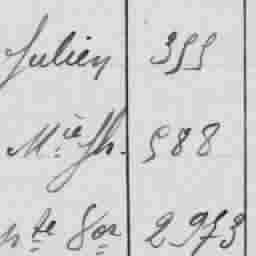 Julien 355
M.ie Jh. 588
nte 8or 2973